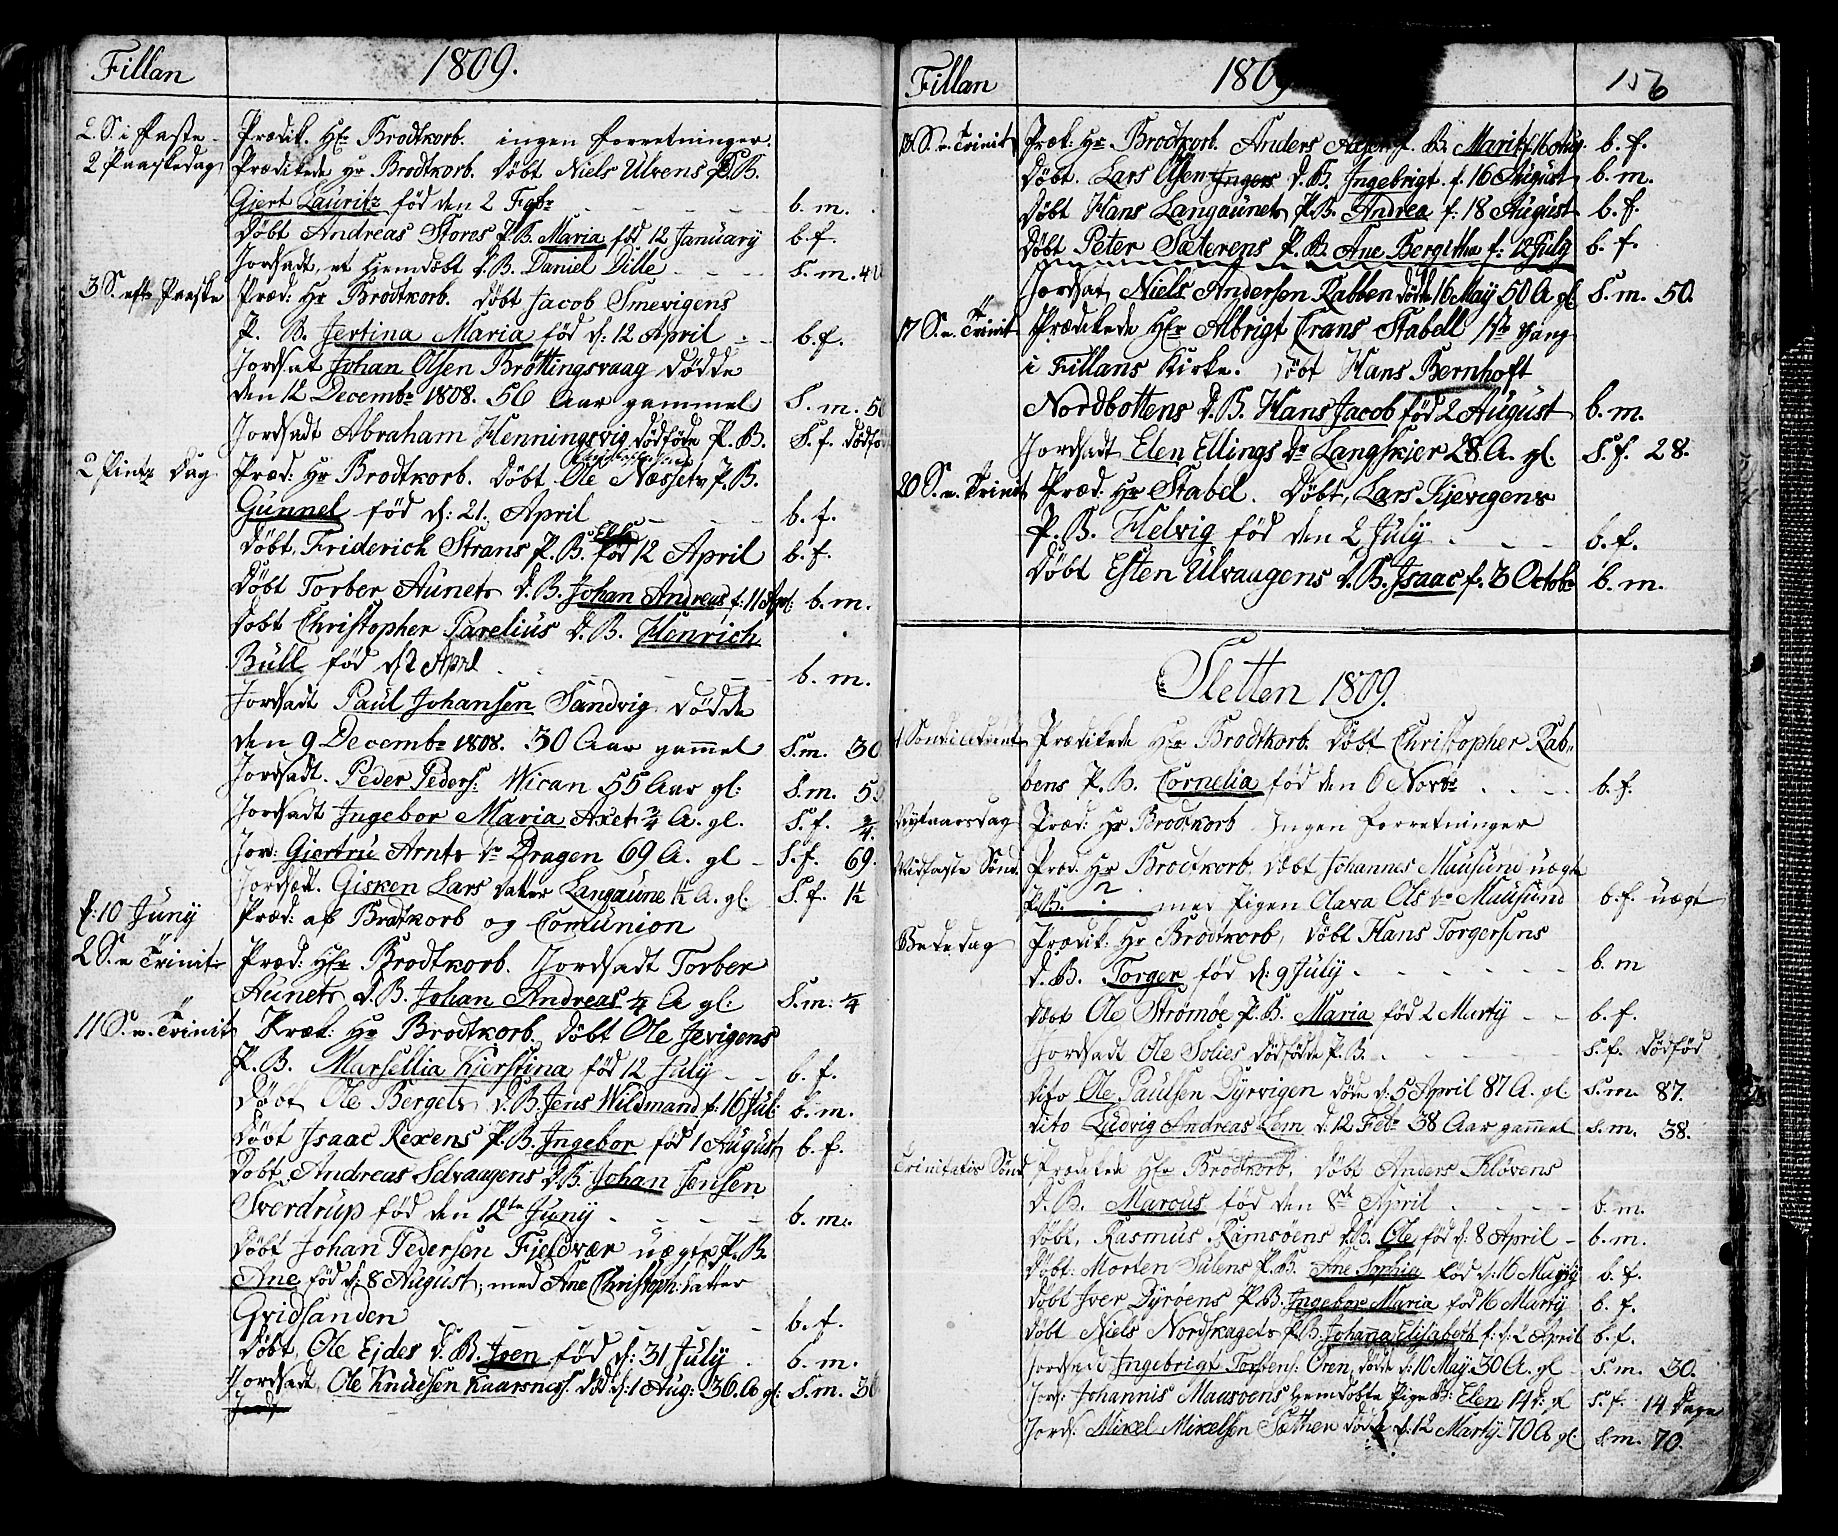 Fillan 1809.
2. S. i Faste Prædik. Hr Brodtkorb. ingen forretninger.
2 Paaskedag Prædikede Hr Brodtkorb. Døbt Niels Ulvens P.B.
Giert Lauritz fød den 2 Febr b. m.
Døbt Andreas Storøs P.B. Maria fød 12 January b. f.
Jordsadt, et Hiemdøbt D.B. Daniel Dille S. m.
3 S. eftr Paaske Præd: Hr Brodtkorb. Døbt Jacob Smevigens
P. B. Jertina Maria fød d: 12 April b. f.
Jordsat Johan Olsen Brottingsvaag Dødde
den 12 Decembr 1808. 56 Aar gammel S. m. 56
Jordsadt Abraham Henningsvig dødføde P. B. S. f. dødfød
2 Pintz Dag Præd: Hr Brodtkorb. Døbt Ole Næssets P. B.
Gunnel fød d: 21. April b. f.
Døbt Friderich Strans P. B. Elen fød 12 April b. f.
Døbt Torber Aunets D. B. Johan Andreas f. 11 Apl: b. m.
Døbt Christopher Parelius D. B. Henrich
Bull fød d 2 April b. m.
Jordsadt Paul Johansen Sandvig Dødde
den 9 Decembr 1808. 30 Aar gammel S. m. 30
Jordsadt. Peder Peders: Wican 55 Aar gl: S. m. 55
Jordsadt Ingebor Maria Axet 3/4 A. gl. S. f. 3/4
Jor: Giertru Arnts Dr Dragen 69 A. gl S. f. 69.
Jordsadt. Gisken Lars Datter Langaune 1½ A. gl. S. f. 1½
f: 10 Juny Præd: af Brodtkorb og Comunion
2 S. e Trinit Præd: Hr Brodtkorb. Jordsadt Torber
Aunets D. B. Johan Andreas 1/4 A gl: S. m: 1/4
11 S. e. Trinit Præk: Hr Brodtkorb. Døbt Ole Jevigens
P. B. Marsellia Kierstina fød 12 July b. f.
Døbt Ole Bergets D. B. Jens Wildmand f: 16 Jul: b. m.
Døbt Isaac Rexens P. B. Ingebor fød 1 August b. f.
Døbt Andreas Selvaagens D. B. Johan Jensen
Sverdrup fød den 12te Juny b. m.
Døbt Johan Pedersen Fjeldvær uægte P. B.
Ane fød d: 8 August, med Ane Christoph: Datter
Qvidsanden b. f.
Døbt, Ole Eides D. B. Joen fød d: 31 July b. m.
Jordsadt, Ole Knudsen Kaarsnes. død d: 1 Aug: 36 A gl: S. m. 36
Jord
Fillan 1809 156
13 S. e. Trinit Præk: Hr Brodtkorb. Anders P. B. Marit f. 16 Aug. b. f.
Døbt. Lars Ulsen Inger D. B. Ingebrigt f. 16 August b. m.
Døbt Hans Langaunets P. B. Andrea f. 18 August b. f.
Døbt Peter Sæterens P. B. Ane Bergitha f: 12 July b. f.
Jordsat, Niels Andersen Rabben døde 16 May 50 A gl. S. m. 50.
17 S. e. Trinit Prædikede Hr Albrigt Crans Stabell 1ste Gang
i Fillans Kirke. Døbt Hans Bernhoft
Nordbottens D. B. Hans Jacob fød 2 August b. m.
Jordsadt Elen Ellings Dr Langskier 28 A. gl. S. f. 28.
20 S. e. Trinit Præd: Hr Stabel. Døbt, Lars Kievigens
P. B. Helvig fød den 2 July b. f.
Døbt Esten Ulvaagens D. B. Isaac f. 3 Octobr b. m.
Sletten 1809.
1 Sønd i Advent Prædikede Hr Brodtkorb. Døbt Christopher Rab-
bens P. B. Cornelia fød den 6 Novbr b. f.
Nytaarsdag Præd: Hr Brodtkorb Ingen forretninger
Midfaste Sønd. Præd. Hr Brodtkorb. Døbt Johannes Mausund uægte
P. B. ? med Pigen Clara Ols Dr Mausund b. f. uægt
Bededag Prædik: Hr Brodtkorb, Døbt Hans Torgersens
D. B. Torger fød d: 9 July b. m
Døbt Ole Strømøe P. B. Maria fød 2 Marty b. f.
Jordsadt Ole Solies dødfødte P. B. S. f. dødfød
dito Ole Paulsen Dyrvigen døde d: 5 April 87 A. gl. S. m. 87.
dito Ludvig Andreas Lem d. 12 Febr 38 Aar gammel S. m. 38.
Trinitatis Sønd Prædikede Hr Brodtkorb, Døbt Anders Kløvens
D. B. Marcus fød den 8de April b. m.
Døbt, Rasmus Ramsøens D. B. Ole fød d: 8 April b. m.
Døbt: Morten Sulens P. B. Ane Sophia fød d: 16 Mayy b. f.
Døbt Iver Dyrøens P. B. Ingebor Maria fød 16 Marty b. f.
Døbt Niels Nordskagets P. B. Johana Elisabeth f: d: 2 April b. f.
Jordsadt Ingebrigt Torbens: Oren, døde d: 10 May 30 A. gl S. m. 30.
Jord: Johannis Mausøens hiemdøbte Pige B: Elen 14 D: gl S. f. 14 Dage
Jords. Mikel Mikelsen Sæther døde d: 12 Marty 70 A gl: S. m. 70.